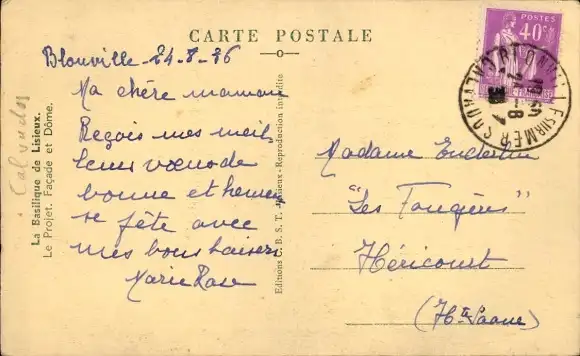 CARTE POSTALE
Blonville 24-8-36
Ma chère maman
Reçois mes meil
leurs vœux de
bonne et heureu
se fête avec
mes bons baisers
Marie Rose
POSTES
40c
Madame
"Les Fougères"
Héricourt
(Hte Saone)
Calvados
La Basilique de Lisieux.
Le Projet. Façade et Dôme.
Editions C. B. S. T. Lisieux - Reproduction interdite